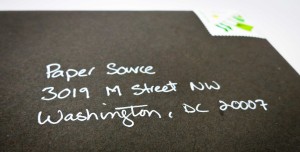 Paper Source
3019 M Street NW
Washington, DC 20007